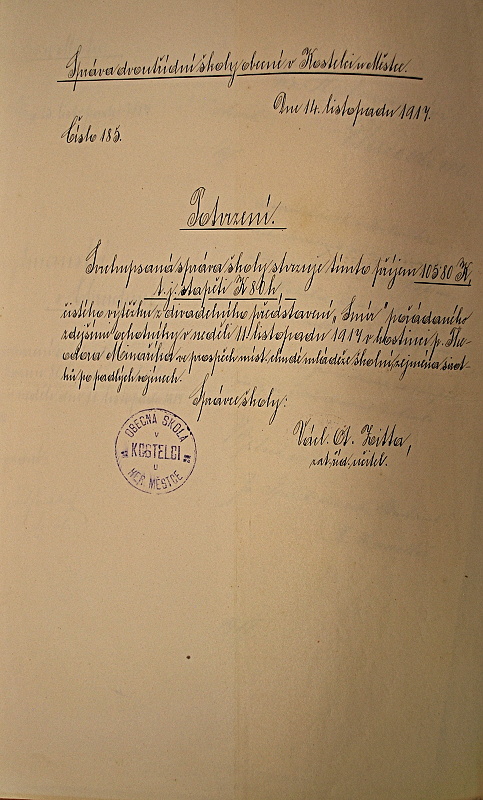 Správa dvoutřídní školy obecné v Kostelci u H. Městce.
Dne 14. listopadu 1917.
Číslo 185.
Potvrzení.
Svrchupsaná správa školy stvrzuje tímto příjem 105·80 K,
t. j. stapěti K 80 h,
čistého výtěžku z divadelního představení „ “ pořádaného
zdejšími ochotníky v neděli 11. listopadu 1917 v hostinci p. Theodora
ve prospěch míst. chudé mládeže školní, zejména sirotků
po padlých vojínech.
Správa školy:
Václ. Zitta,
učitel.
OBECNÁ ŠKOLA
V
KOSTELCI
U
HEŘ. MĚSTCE